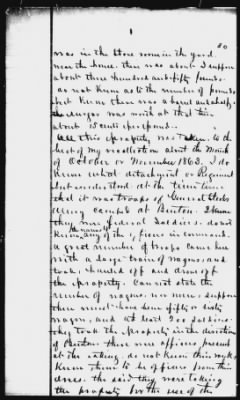 80
was in the Store room in the yard
near the house. there was about I suppose
about three hundred and fifty pounds.
do not know as to the number of pounds
but know there was a barrel and a half.
the sugar was worth at that time
about 15 cents per pound.
All this property was taken to the
best of my recollection about the Month
of October or November 1863. I do
know what detachment or Regiment
but understood at the time
that it was troops of General
Army camped at I know
they were Federal Soldiers. do not
know the names of any of the officers in command.
a great number of troops came here
with a large train of wagons, and
took, hauled off and drove off
the property. Cannot state the
number of wagons, nor men, suppose
there must have been fifty or sixty
wagons, and at least 200 soldiers.
they took the property in the direction
of there were officers present
at the taking, do not know their rank
know them to be officers from their
dress. they said they were taking
the property for the use of the